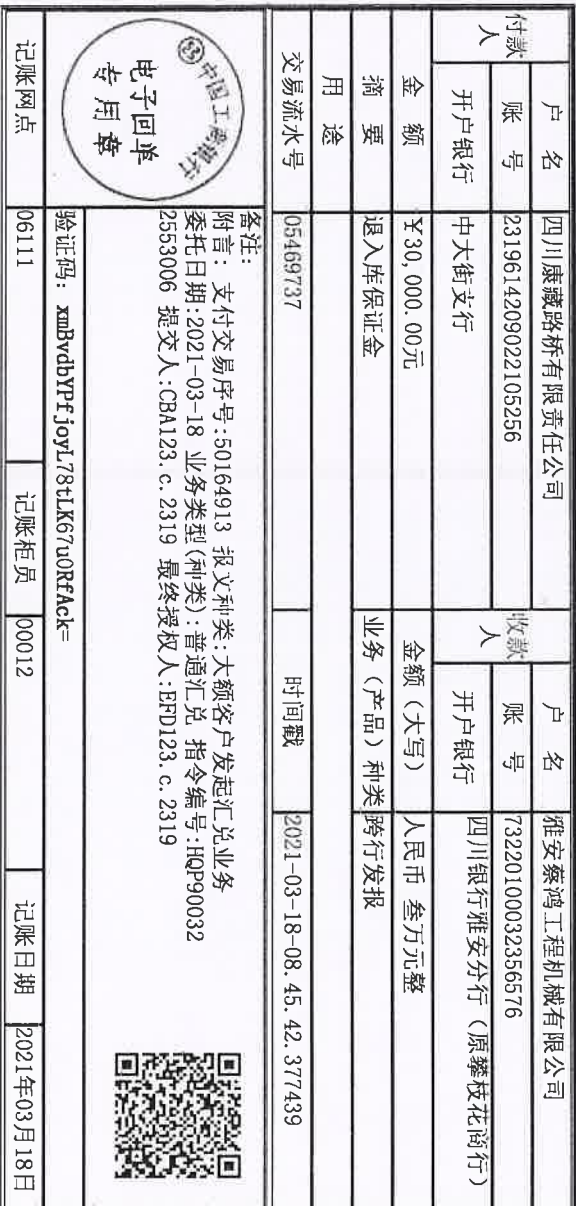 付款人 户名 四川康藏路桥有限责任公司 收款人 户名 雅安蔡鸿工程机械有限公司
账号 2319614209022105256 账号 73220100032356576
开户银行 中大街支行 开户银行 四川银行雅安分行（原攀枝花商行）
金额 ¥30,000.00元 金额（大写） 人民币 叁万元整
摘要 退入库保证金 业务（产品）种类 跨行发报
用途
交易流水号 05469737 时间戳 2021-03-18-08.45.42.377439
中国工商银行
电子回单
专用章
备注：
附言: 支付交易序号:50164913 报文种类:大额客户发起汇兑业务
委托日期:2021-03-18 业务类型(种类):普通汇兑 指令编号:HQP90032
2553006 提交人:CBA123.c.2319 最终授权人:EFD123.c.2319
验证码: xmBvdbYPfjoyL78tLK67uORfAck=
记账网点 06111 记账柜员 00012 记账日期 2021年03月18日